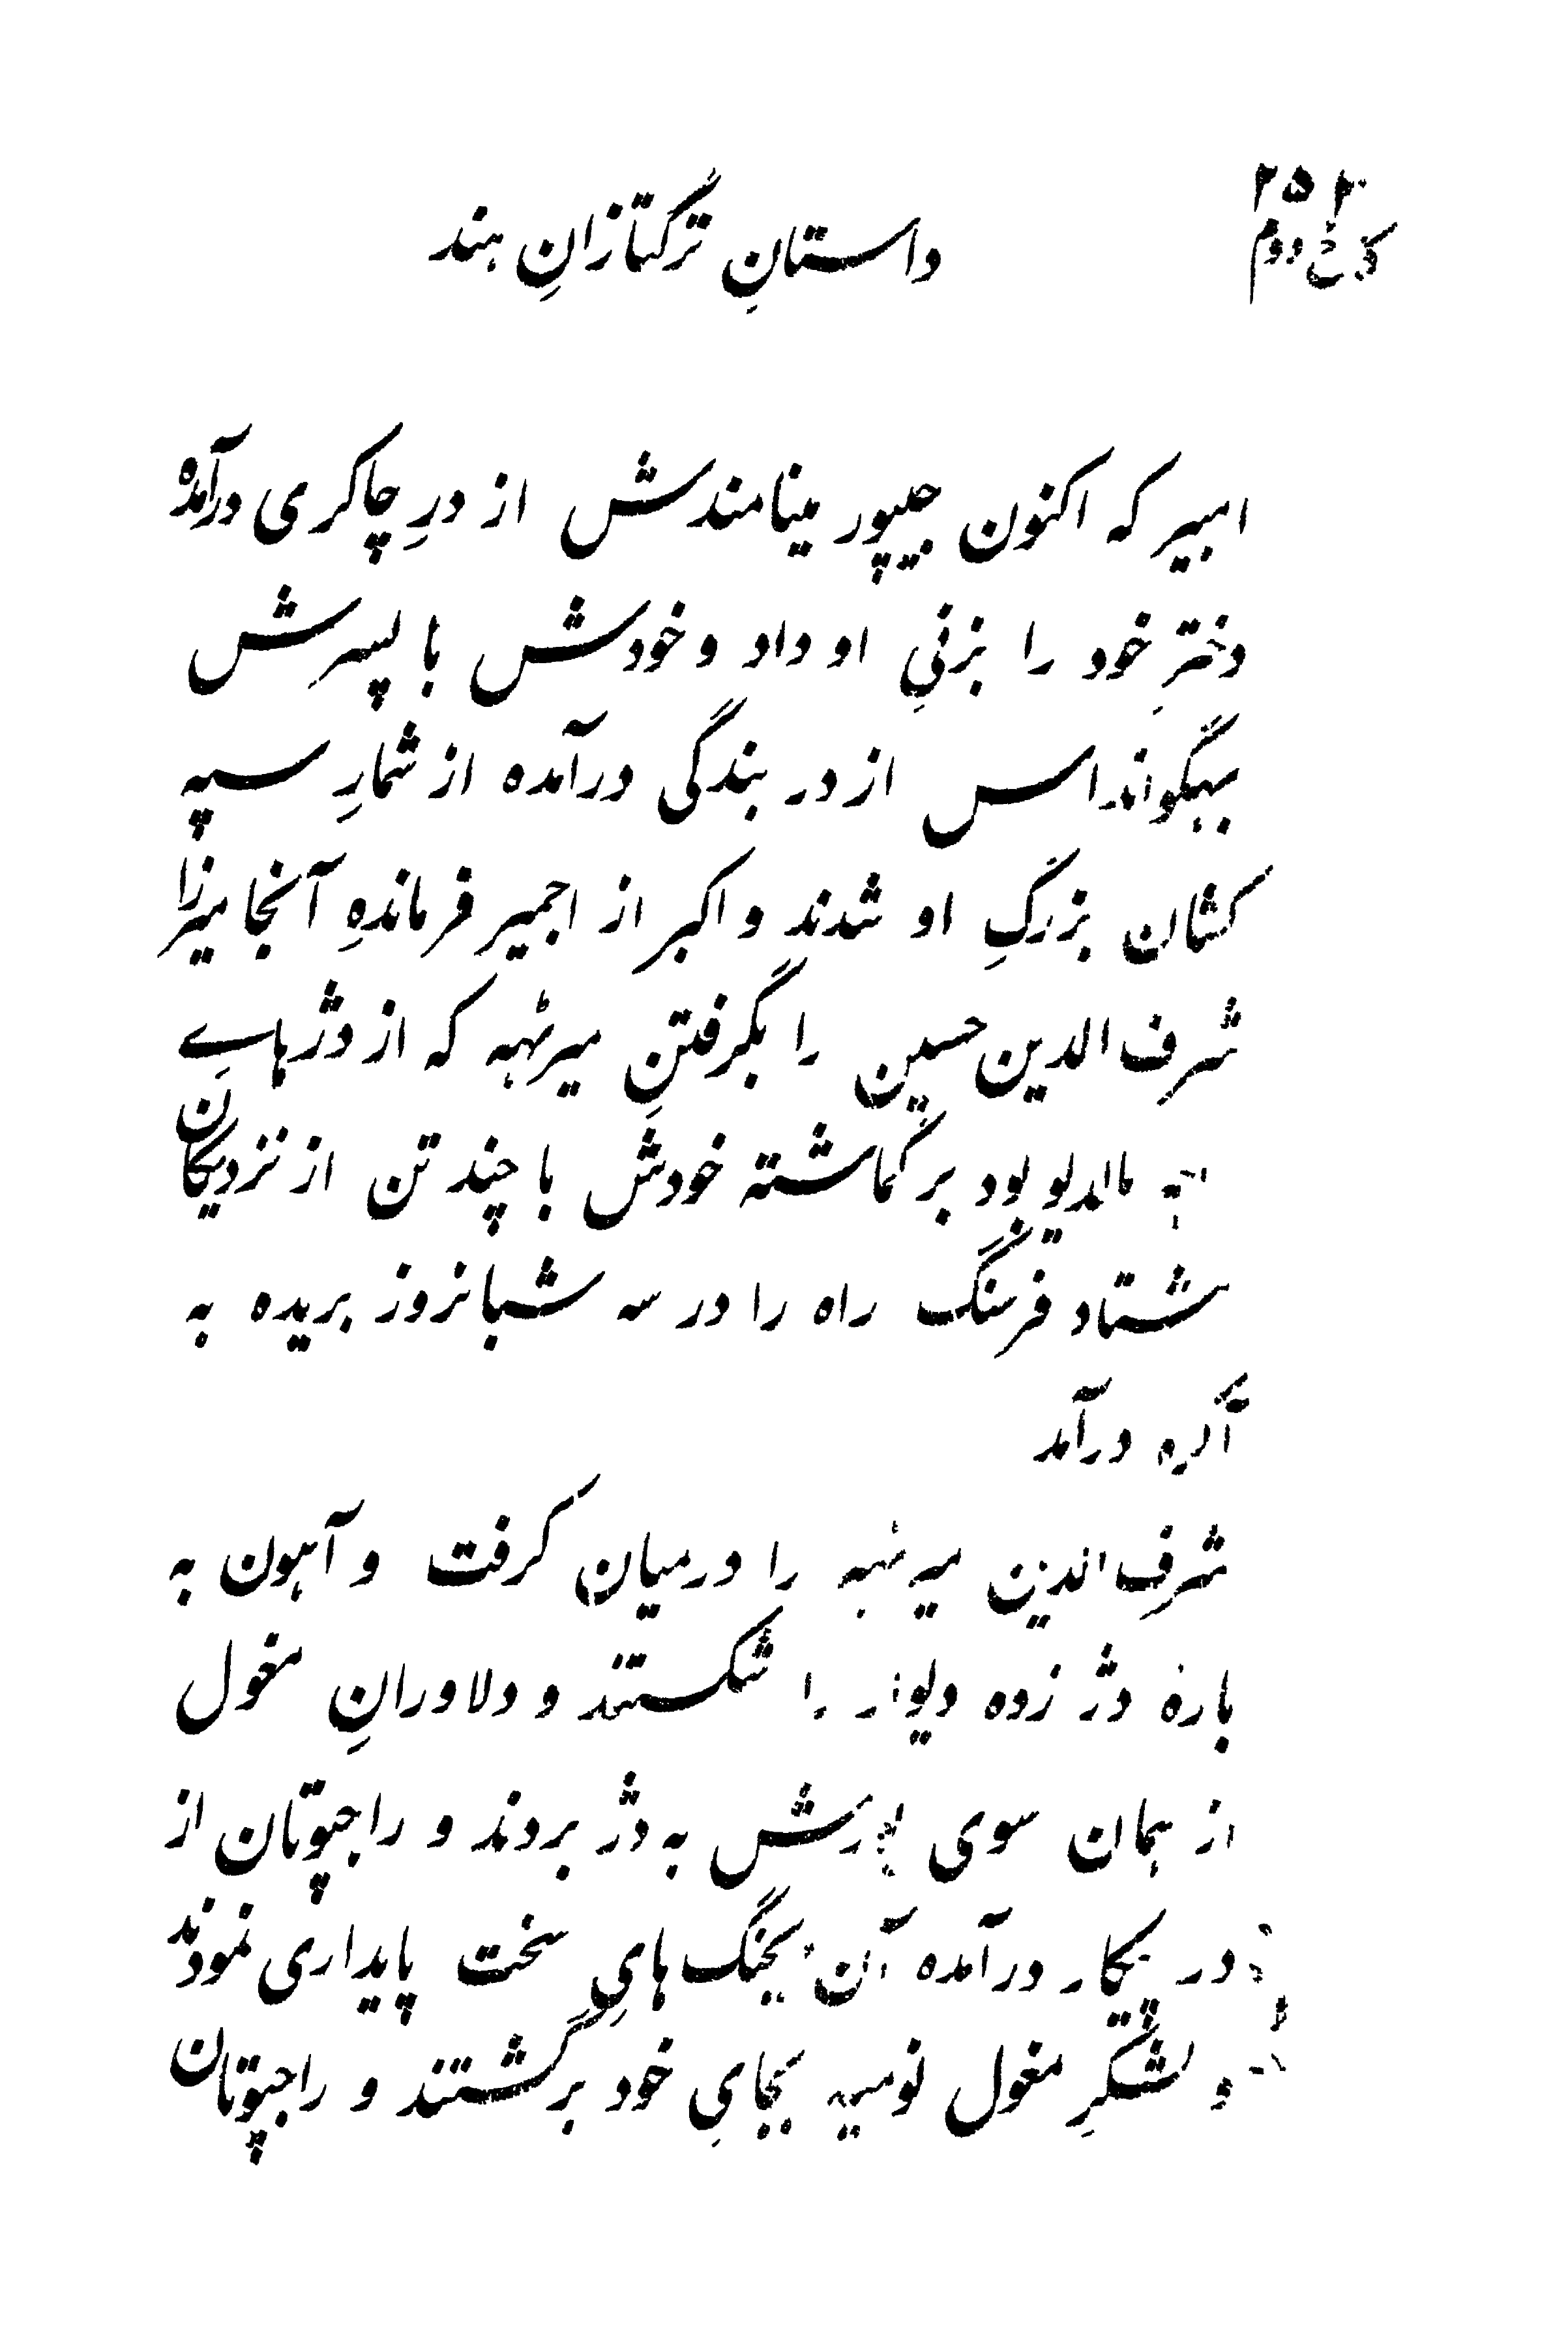 ۲۵۲
کاخ دوم
داستانِ ترکتازانِ هند
امبیر که اکنون جیپور مینامندش از درِ چاکری درآمده
دخترِ خود را بزنیِ او داد و خودش با پسرش
بهگونداس از در بندگی درآمده از شمارِ سپه
کشان بزرگِ او شدند و اکبر از اجمیر فرماندهِ آنجا میرزا
شرف الدین حسین را بگرفتنِ میرٹهه که از دژهایِ
مالدیو بود برگماشته خودش با چند تن از نزدیکان
هشتاد فرسنگ راه را در سه شبانروز بریده به
آگره درآمد
شرف الدین میرٹهه را درمیان گرفت و آهون به
بارهٔ دژ زده دیوار را شکستند و دلاورانِ مغول
از همان سوی یورش به دژ بردند و راجپوتان از
در پیکار درآمده آن بجنگ‌هایِ سخت پایداری نمودند
لشکرِ مغول نومید بجایِ خود برگشتند و راجپوتان